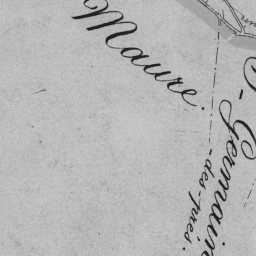 Maure.
S-Germain
-des-près.